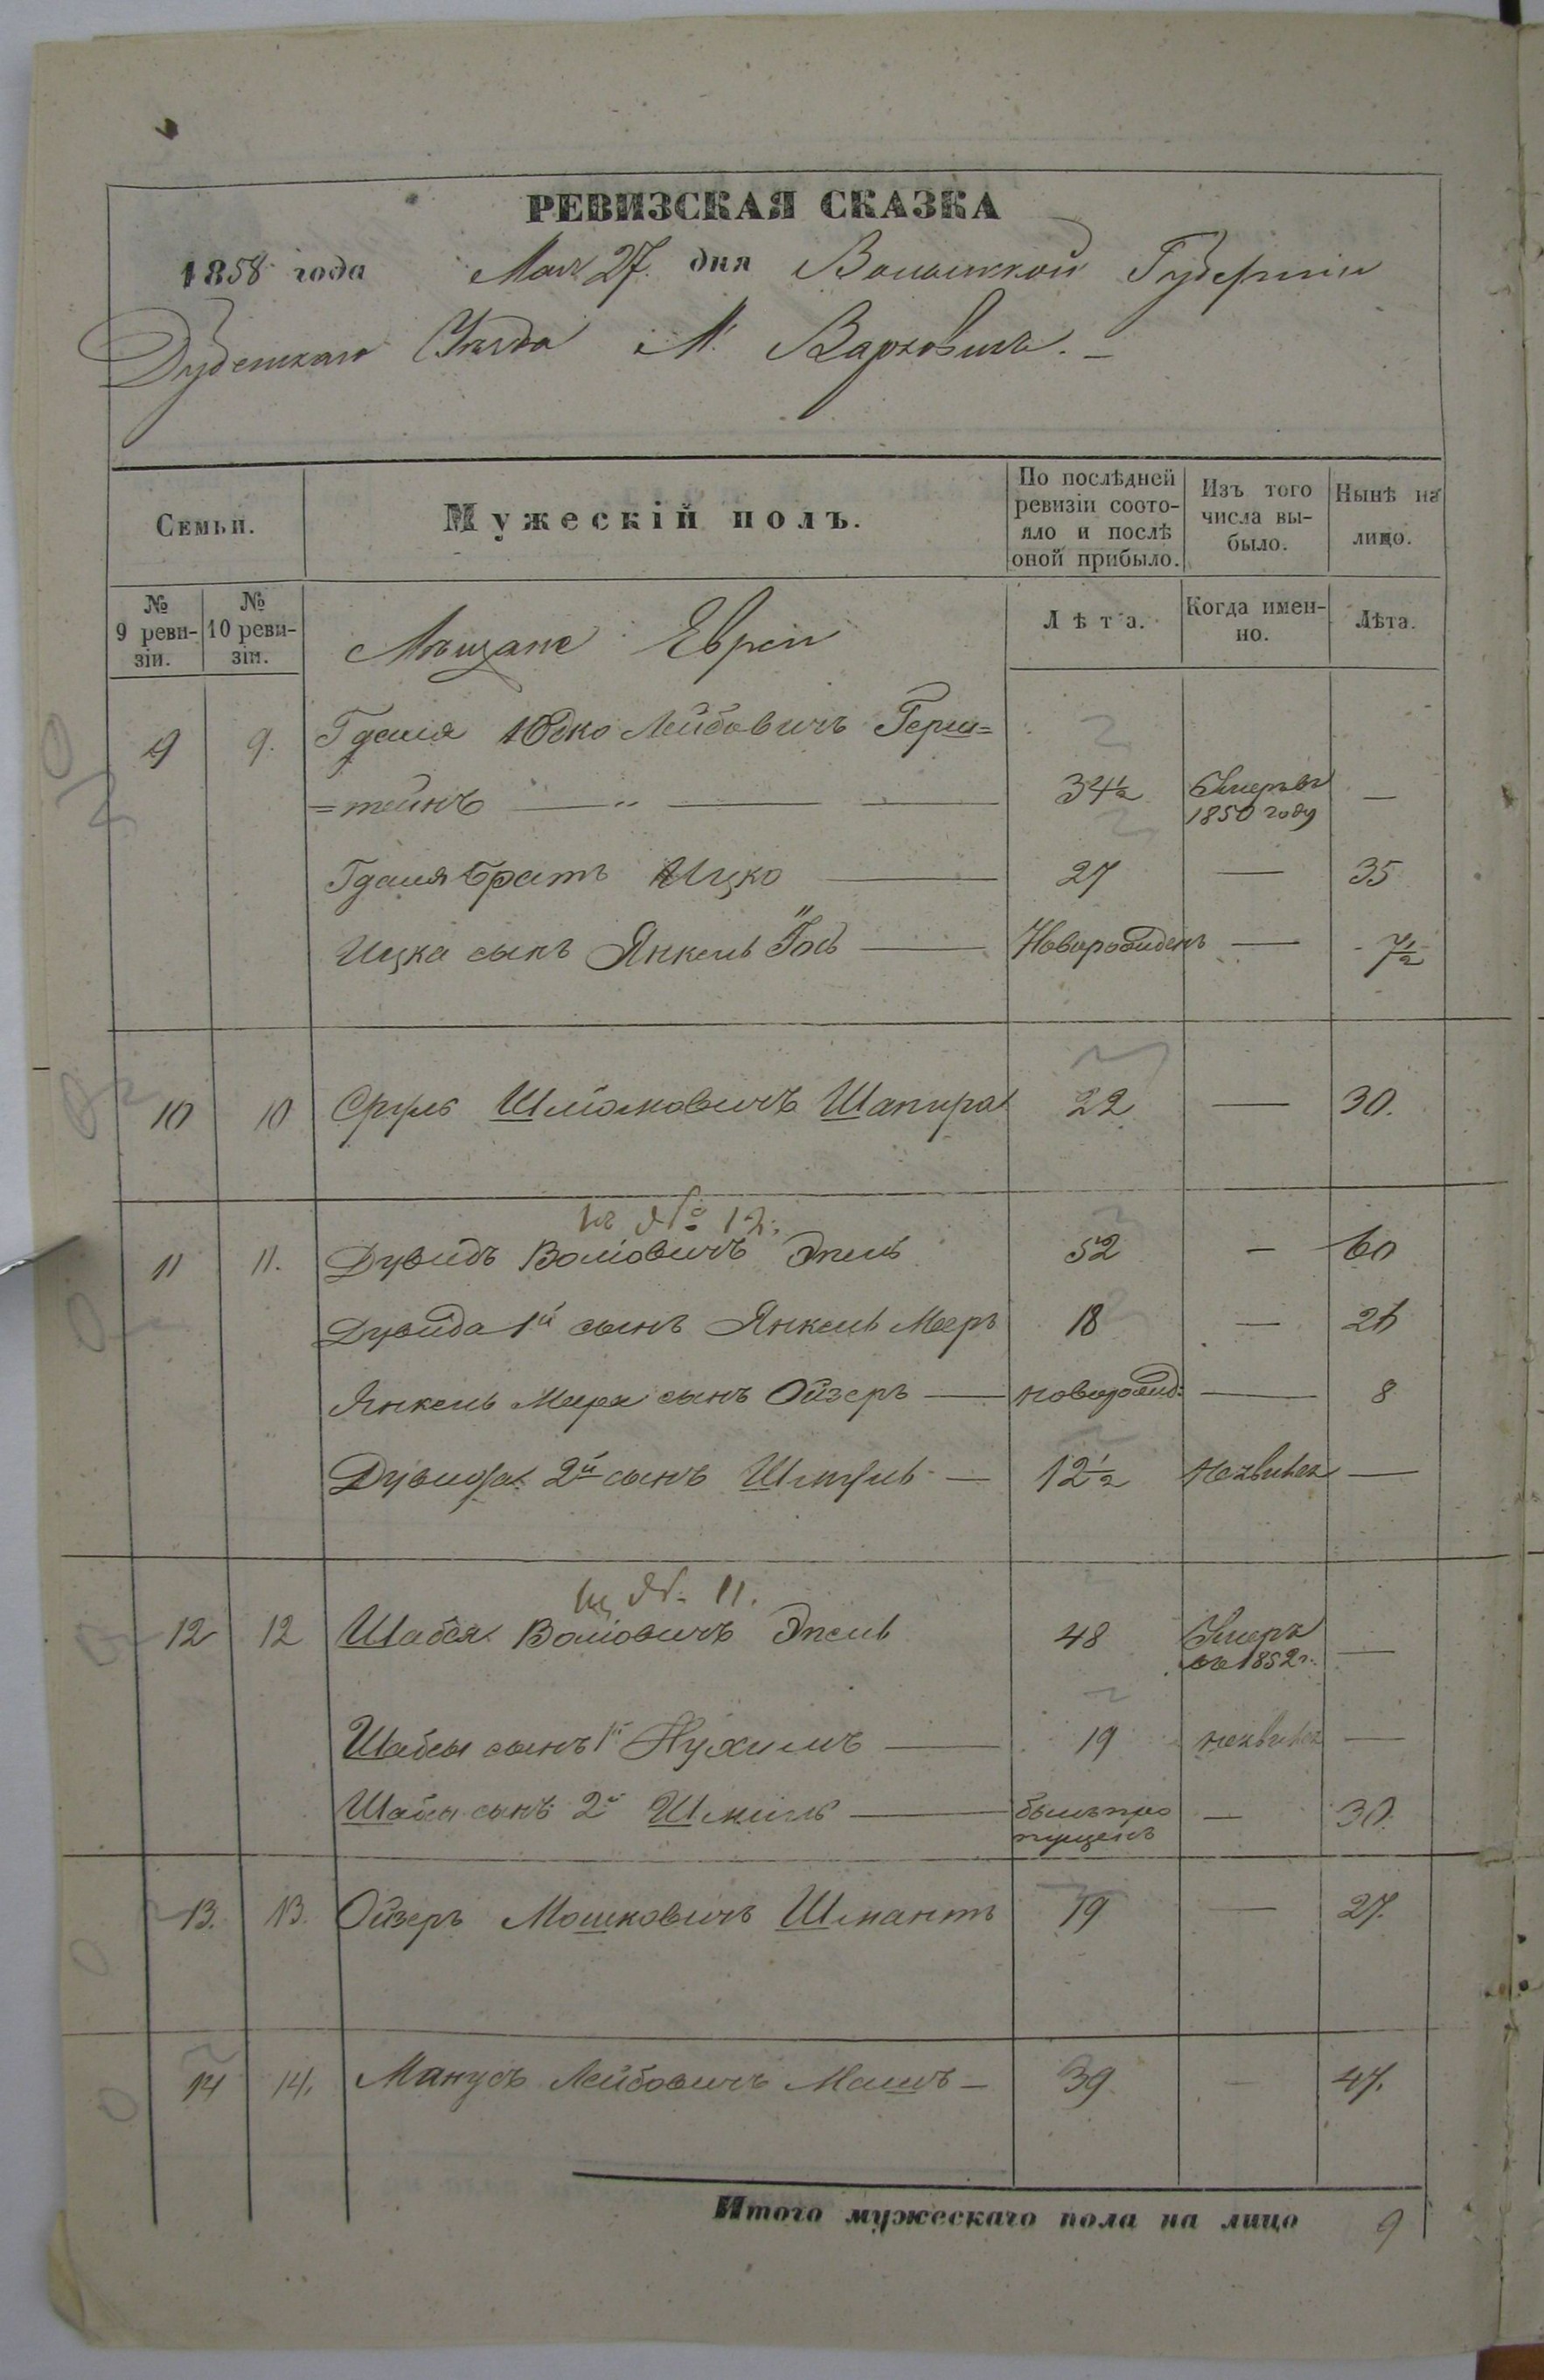 РЕВИЗСКАЯ СКАЗКА
1858 года Мая 27. дня Волынской Губерніи
Дубенскаго Уѣзда М. Варковичъ. –
Семьи.
Мужескій полъ.
По послѣдней ревизіи состояло и послѣ оной прибыло.
Изъ того числа выбыло.
Нынѣ на лицо.
№ 9 ревизіи.
№ 10 ревизіи.
Мѣщане Евреи
Лѣта.
Когда именно.
Лѣта.
9 9. Гдаля Юдко Лейбовичъ Герш=
=тейнъ — 34½ Умеръ въ 1850 году —
Гдаля братъ Ицко — 27 — 35
Ицка сынъ Янкель Іось — Новорожденъ — 7½
10 10 Сруль Шліомовичъ Шапира 22 — 30.
къ № 12.
11 11. Дувидъ Воліовичъ Эпель 52 — 60
Дувида 1й сынъ Янкель Меръ 18 — 26
Янкель Мера сынъ Ойзеръ — новорожд: — 8
Дувида 2й сынъ Шмуль — 12½ —
№ 11.
12 12 Шабся Воліовичъ Эпель 48 Умеръ въ 1852 г. —
Шабсы сынъ 1й Нухимъ — 19 —
Шабсы сынъ 2й — былъ пропущенъ — 30.
13. 13. Ойзеръ Мошковичъ Шмантъ 19 — 27.
14 14. Манусъ Лейбовичъ — 39 — 47.
Итого мужескаго пола на лицо 9